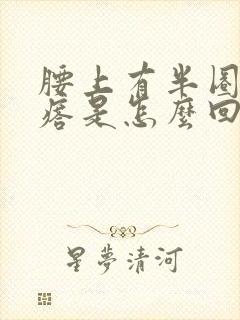 腰上有半圈
痞是怎麼回
星夢清河